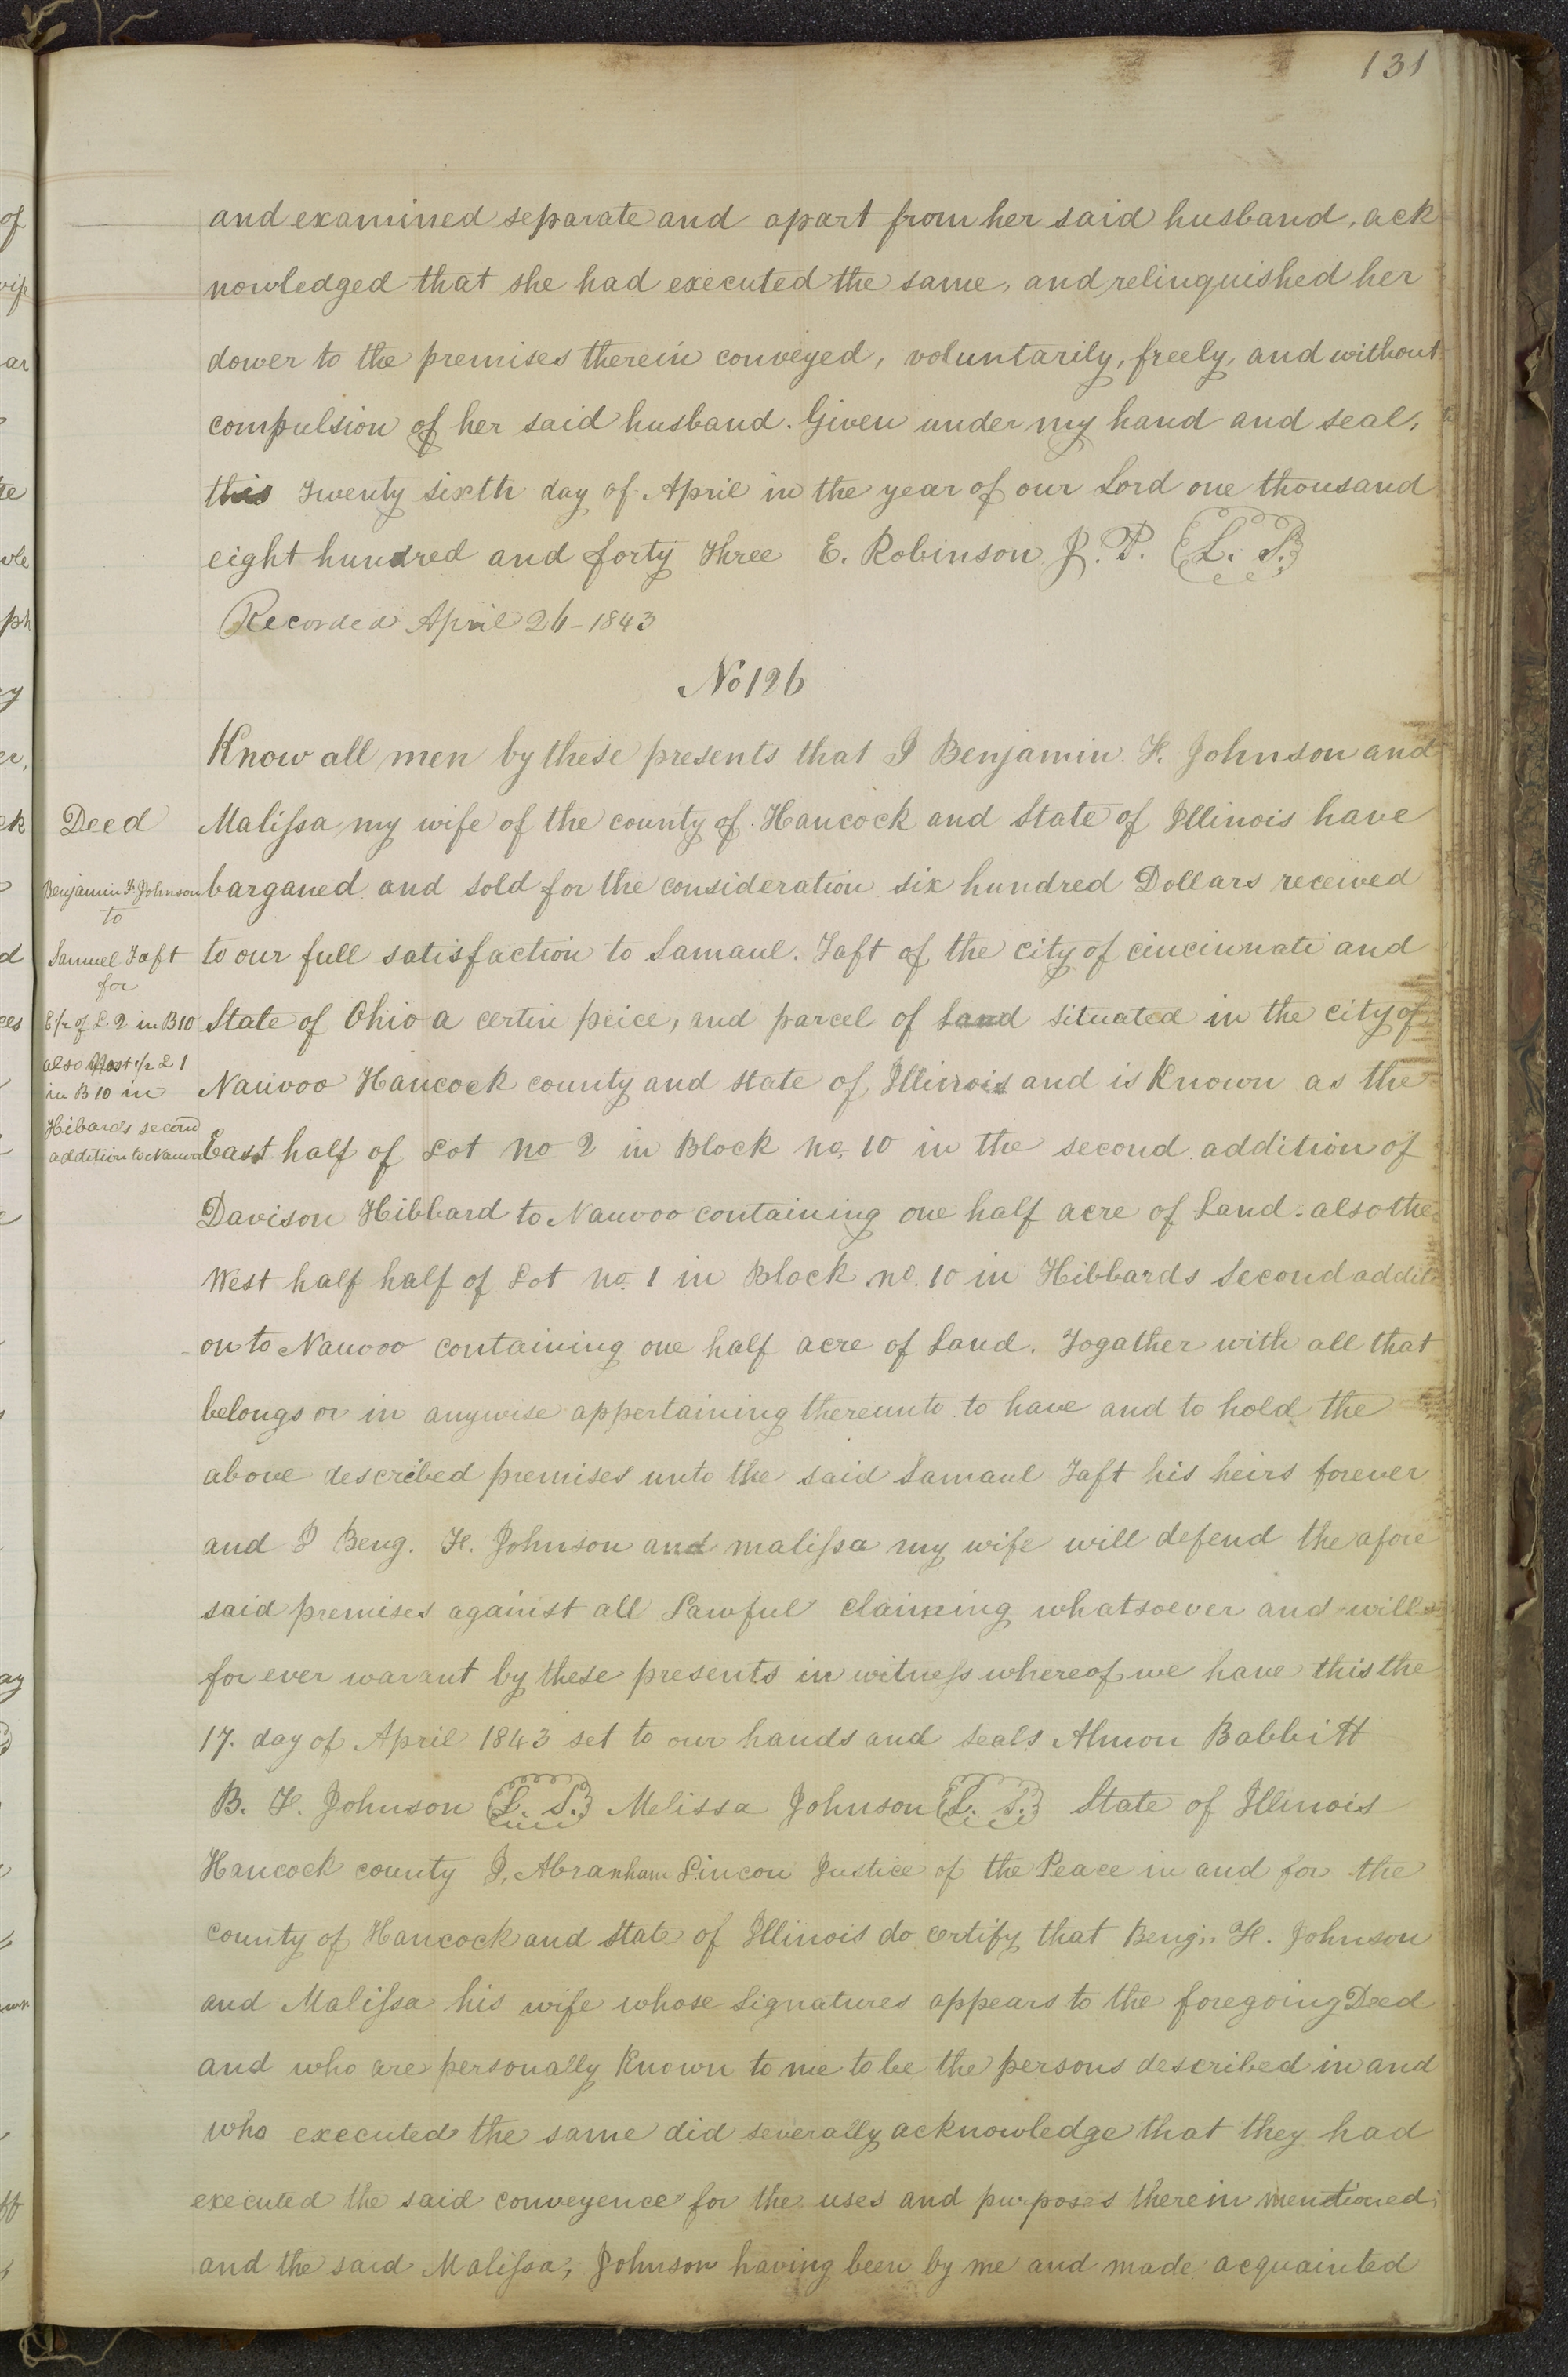 131
and examined separate and apart from her said husband, ack
nowledged that she had executed the same, and relinquished her
dower to the premises therein conveyed, voluntarily, freely, and without
compulsion of her said husband. Given under my hand and seal,
this Twenty sixth day of April in the year of our Lord one thousand
eight hundred and forty Three E. Robinson J. P. (L. S.)
Recorded April 26-1843
No 196
Know all men by these presents that I Benjamin. F. Johnson and
Malissa my wife of the county of Hancock and State of Illinois have
barganed and sold for the consideration six hundred Dollars received
to our full satisfaction to Samaul. Taft of the city of cincinnati and
State of Ohio a certin peice, and parcel of Land situated in the city of
Nauvoo Hancock county and state of Illinois and is Known as the
East half of Lot no 2 in Block no. 10 in the second addition of
Davison Hibbard to Nauvoo containing one half acre of Land. also the
West half half of Lot no. 1 in Block no. 10 in Hibbards Second addit
on to Nauvoo containing one half acre of Land. Togather with all that
belongs or in anywise appertaining thereunto to have and to hold the
above described premises unto the said Samaul Taft his heirs forever
and I Beng. F. Johnson and malissa my wife will defend the afore
said premises against all Lawful claiming whatsoever and will
for ever warant by these presents in witness whereof we have this the
17. day of April 1843 set to our hands and seals Almon Babbitt
B. F. Johnson (L. S.) Melissa Johnson (L. S.) State of Illinois
Hancock county I, Abranham Lincon Justice of the Peace in and for the
county of Hancock and State of Illinois do certify that Beng.. F. Johnson
and Malissa his wife whose Signatures appears to the foregoing Deed
and who are personally Known to me to be the persons described in and
who executed the same did severally acknowledge that they had
executed the said conveyence for the uses and purposes therein mentioned
and the said Malissa, Johnson having been by me and made acquainted
Deed
Benjamin F. Johnson
to
Samuel Taft
for
E1/2 of L. 2 in B10
also West 1/2 L 1
in B 10 in
Hibards second
addition to Nauvoo